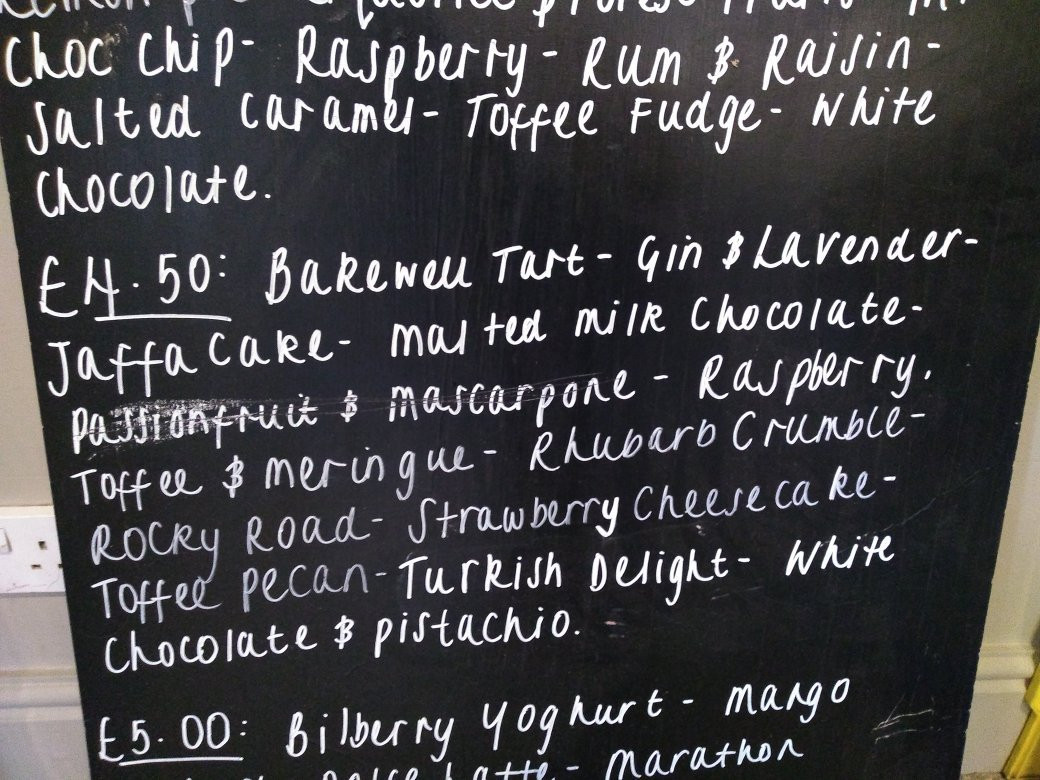 Choc Chip- Raspberry- Rum & Raisin-
Salted Caramel- Toffee Fudge- White
Chocolate.
£4.50: Bakewell Tart- Gin & Lavender-
Jaffa Cake- malted milk Chocolate-
Passionfruit & mascarpone - Raspberry.
Toffee & meringue- Rhubarb Crumble-
Rocky Road- Strawberry Cheesecake-
Toffee pecan- Turkish Delight- White
Chocolate & pistachio.
£5.00: Bilberry Yoghurt- mango
Latte- Marathon